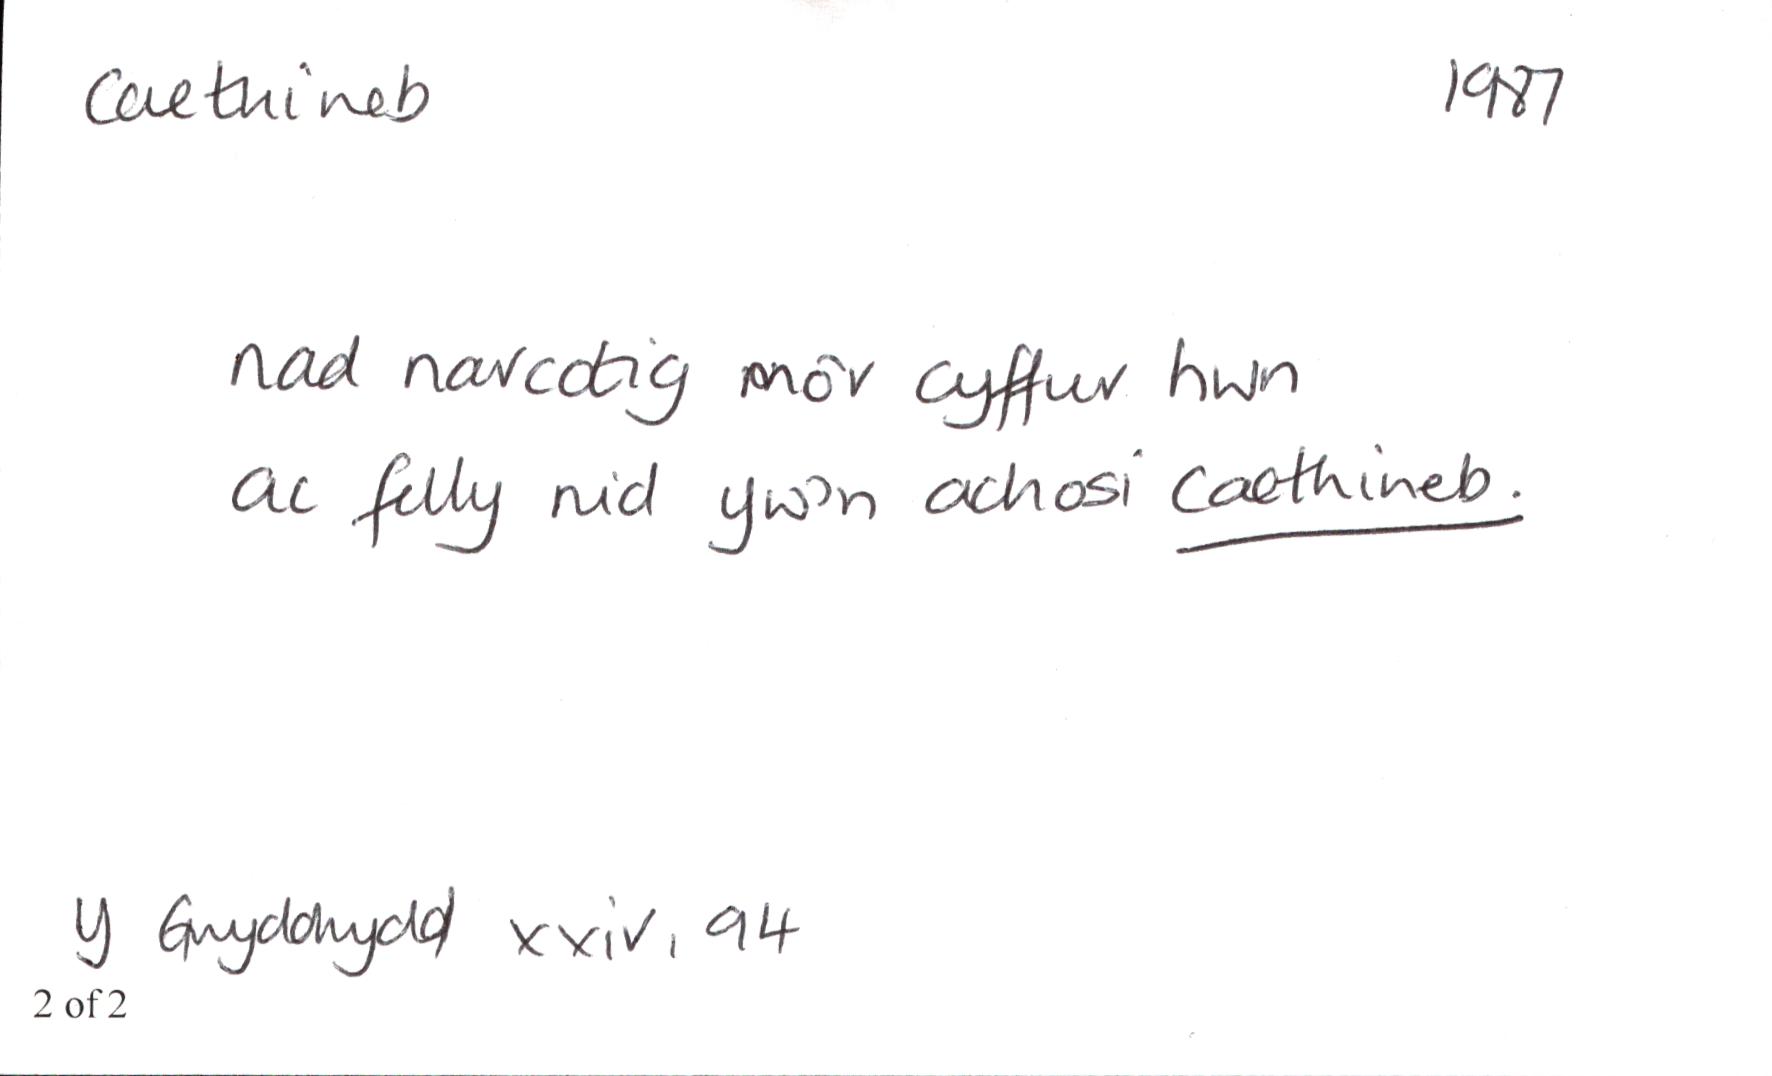 Caethineb 1987
nad narcotig mo'r cyffur hwn
ac felly nid yw'n achosi caethineb.
Y Gwyddonydd xxiv, 94
2 of 2